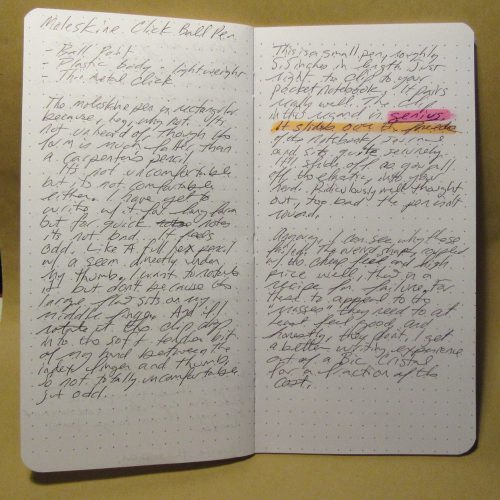 Moleskine Click Ball Pen
- Ball Point
- Plastic body - lightweight
- Thin Metal Click
The moleskine pen is rectangular
because, hey, why not. It's
not unheard of though its
form is much fatter than
a carpenters pencil
It's not uncomfortable
but, its not comfortable
either. I have yet to
write w/ it for long form
but for quick notes
its not bad. It feels
odd. Like a full hex pencil
w/ a seem directly under
my thumb. I want to rotate
it but dont because its
large flat sits on my
middle finger. And if I
rotate it the clip digs
into the soft tender bit
of my hand between the
index finger and thumb.
Is not totally uncomfortable
just odd.
This is a small pen, roughly
5.5 inches in length. Just
right to clip to your
pocket notebook. It pairs
really well. The clip
in this regard is genius.
It slides over the
of the notebook
and sits quite securely.
It slides off as you pull
off the elastic into your
hand. Ridiculously well thought
out, too bad the pen isn't
Anyway, I can see why these
failed. The weird shape, coupled
w/ the cheap feel and high
price well, this is a
recipe for failure. For
these to appeal to the
masses they need to at
least feel good and
honestly, they don't. I get
a better writing experience
out of a Bic Cristal
for a fraction of the
cost.